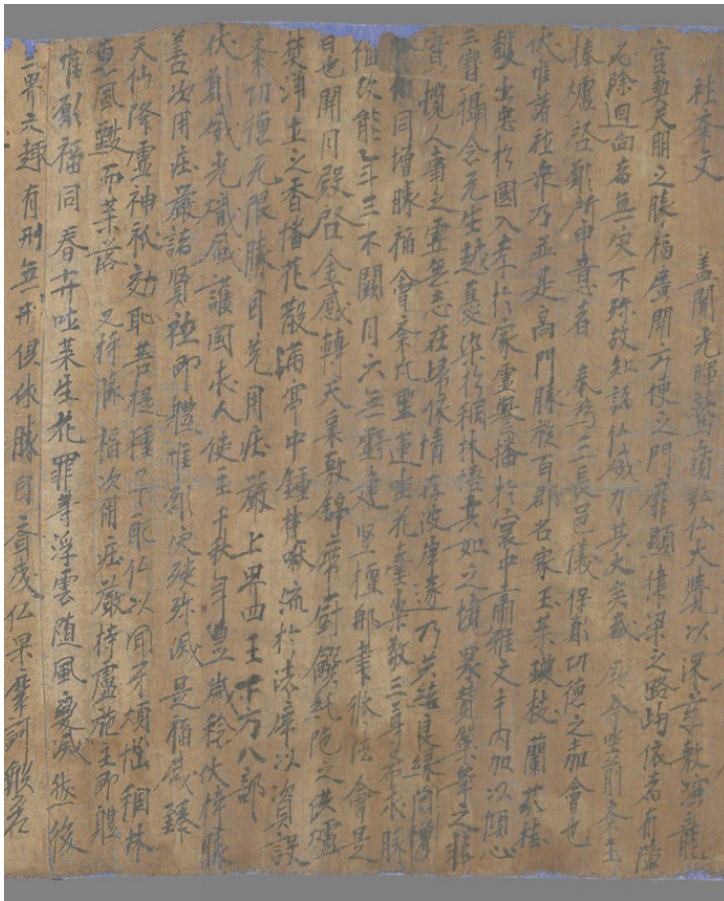 社齋文 蓋聞光暉鷲嶺弘仏大覺以深慈敷演龍
宮契天朋之勝福廣開方便之門靡顯律梁之路歸依者有障
必除迴向者無災不弥故知諸仏威力其大矣哉 厥今坐前齋主
捧爐啓願所申意者 奉為三長邑儀保願功德之嘉會也
伏惟諸社衆乃並是高門勝族百郡名家玉葉瓊枝蘭芬桂
馥出忠於國入孝於家靈譽播於寰中肅雅文丰內加以傾心
三寶攝念无生越愛染於稠林悟真如之境界替榮華之非
寶攬人事之虛無志在歸依情存波岸遂乃共結良緣同增
同增勝福會齋凡聖蓮坐花臺崇敬三尊希求勝
伽故能年三不闕月六無虧建豎檀那聿修法會是
日也開月殿啓金函轉大乘敷錦席廚饌純陀之供爐
焚淨土之香幡花散滿亭中鍾梵啾流於法席以資設
齋功德无限勝因先用庄嚴上界四王十方八部
伏願威光熾盛護國求人使主千秋年豊歲稔伏持勝
善次用庄嚴諸賢社即體惟願灾殃弥滅是福咸臻
天仙降靈神祇効耻菩提種子配仏以開牙煩惱稠林
惠風皷而葉落 又持勝福次用庄嚴持爐施主即體
惟願福同春卉吐葉生花罪等浮雲随風變滅然後
三界六趣有刑無刑俱休勝因齊成仏果摩訶般若